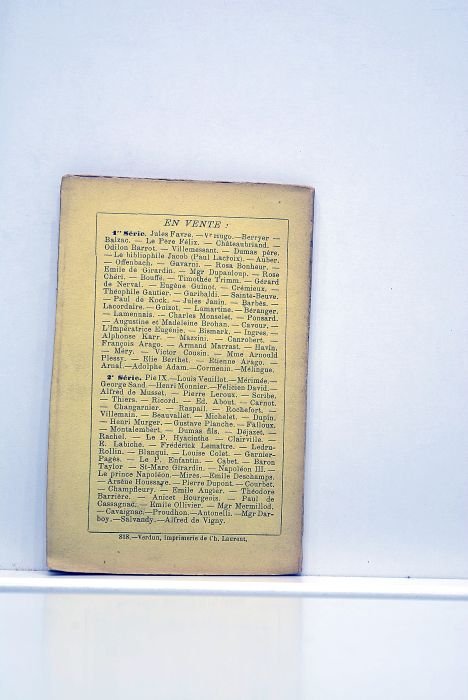 EN VENTE :
1re Série. Jules Favre. — Vor Hugo. — Berryer —
Balzac. — Le Père Félix. — Châteaubriand. —
Odilon Barrot. — Villemessant. — Dumas père.
— Le bibliophile Jacob (Paul Lacroix). — Auber.
— Offenbach. — Gavarni. — Rosa Bonheur. —
Emile de Girardin. — Mgr Dupanloup. — Rose
Chéri. — Bouffé. — Timothée Trimm. — Gérard
de Nerval. — Eugène Guinot. — Crémieux. —
Théophile Gautier. — Garibaldi. — Sainte-Beuve.
— Paul de Kock. — Jules Janin. — Barbès. —
Lacordaire. — Guizot. — Lamartine. — Béranger.
— Lamennais. — Charles Monselet. — Ponsard.
— Augustine et Madeleine Brohan. — Cavour. —
L'Impératrice Eugénie. — Bismark. — Ingres. —
Alphonse Karr. — Mazzini. — Canrobert. —
François Arago. — Armand Marrast. — Havin.
— Méry. — Victor Cousin. — Mme Arnould
Plessy. — Elie Berthet. — Etienne Arago. —
Arnal. — Adolphe Adam. — Cormenin. — Mélingue.
2e Série. Pie IX. — Louis Veuillot. — Mérimée. —
George Sand. — Henri Monnier. — Félicien David. —
Alfred de Musset. — Pierre Leroux. — Scribe.
— Thiers. — Ricord. — Ed. About. — Carnot.
— Changarnier. — Raspail. — Rochefort. —
Villemain. — Beauvallet. — Michelet. — Dupin.
— Henri Murger. — Gustave Planche. — Falloux.
— Montalembert. — Dumas fils. — Déjazet. —
Rachel. — Le P. Hyacinthe — Clairville. —
E. Labiche. — Frédérick Lemaître. — Ledru-
Rollin. — Blanqui. — Louise Colet. — Garnier-
Pagès. — Le P. Enfantin. — Cabet. — Baron
Taylor — St-Marc Girardin. — Napoléon III. —
Le prince Napoléon. — Mirès. — Emile Deschamps.
— Arsène Houssaye. — Pierre Dupont. — Courbet.
— Champfleury. — Emile Augier. — Théodore
Barrière. — Anicet Bourgeois. — Paul de
Cassagnac. — Emile Ollivier. — Mgr Mermillod.
— Cavaignac. — Proudhon. — Antonelli. — Mgr Dar-
boy. — Salvandy. — Alfred de Vigny.
818. — Verdun, imprimerie de Ch. Laurent.